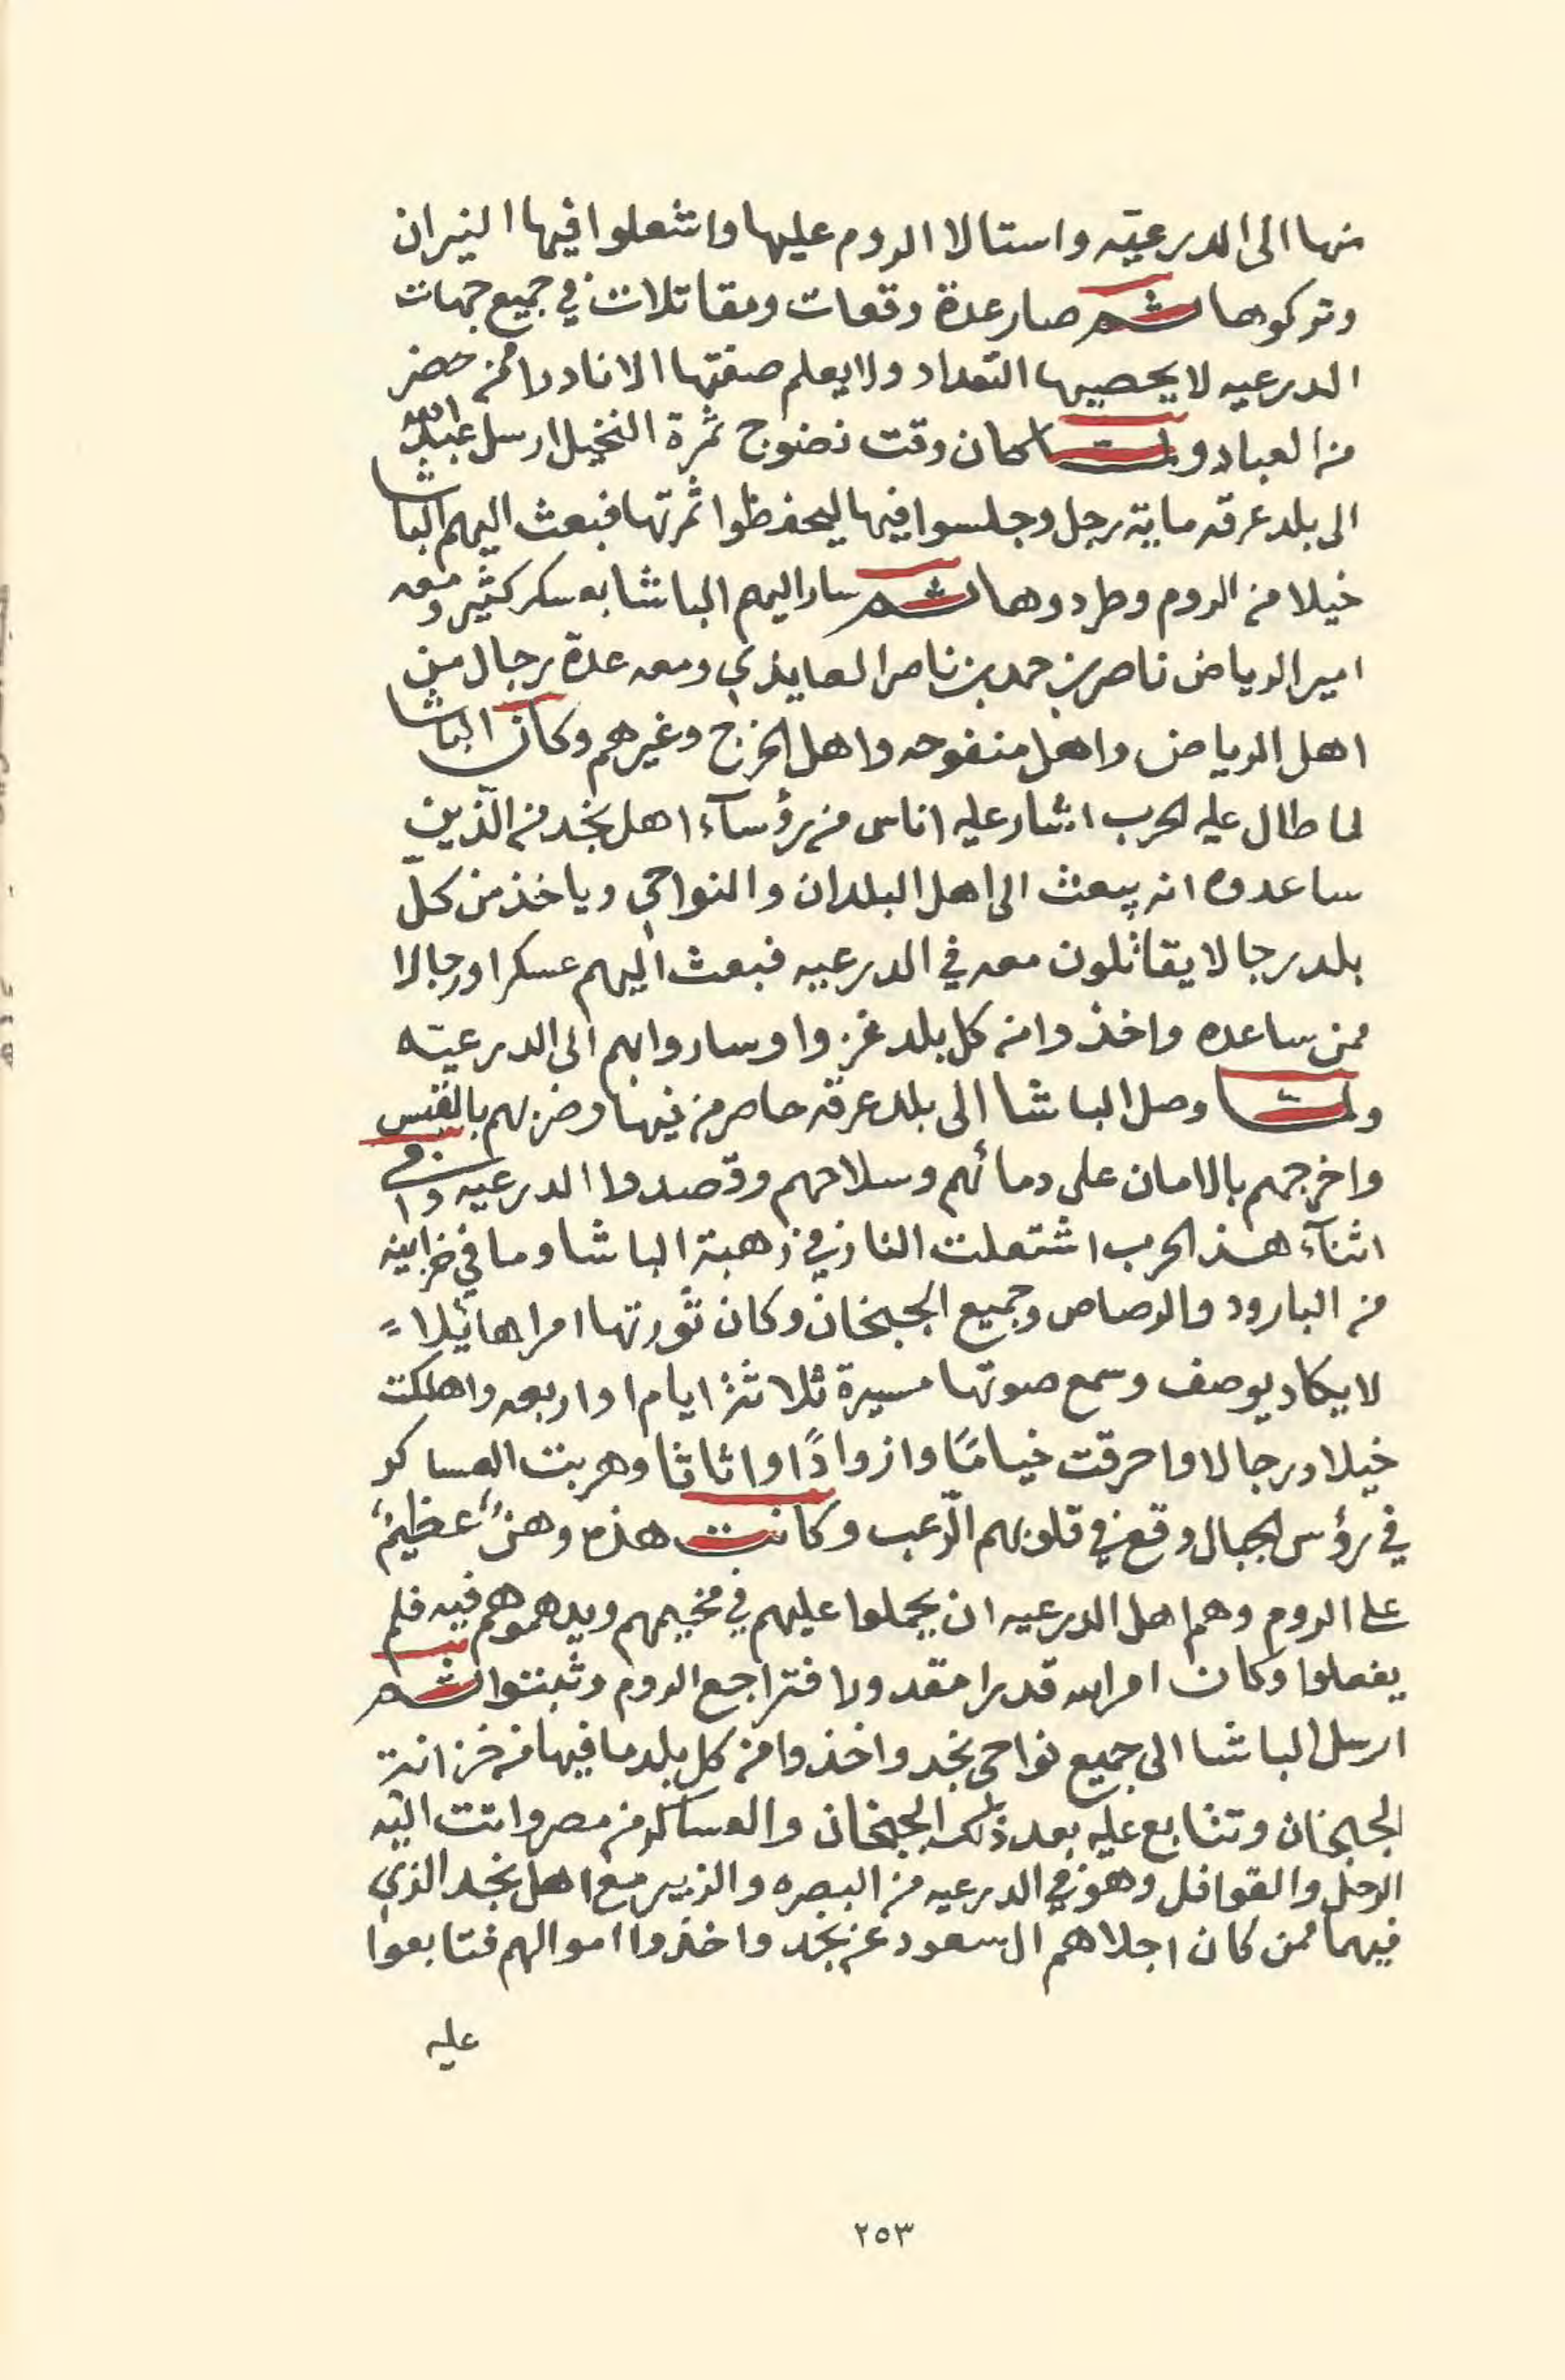 منها الى الدرعيّه واستالا الروم عليها واشعلوا فيها النيران
وتركوها ثم صار عدة وقعات ومقاتلات في جميع جهات
الدرعيه لا يحصيها التعداد ولا يعلم صفتها الا نادرا ممن حضر
من العباد ولما كان وقت نضوج ثمرة النخيل ارسل عبدالله
الى بلد عرقه ماية رجل وجلسوا فيها ليحفظوا ثمرتها فبعث اليهم الباشا
خيلا من الروم وطردوها ثم سار اليهم الباشا بعسكر كثير ومعه
امير الرياض ناصر بن حمد بن ناصر العايذي ومعه عدة رجال من
اهل الرياض واهل منفوحه واهل الخرج وغيرهم وكان الباشا
لما طال عليه الحرب اشار عليه اناس من رؤسآء اهل نجد من الّذين
ساعدوه انه يبعث الى اهل البلدان والنواحي وياخذ من كلّ
بلد رجالا يقاتلون معه في الدرعيه فبعث اليهم عسكرا ورجالا
ممن ساعده واخذوا من كل بلد غزوا وساروا بهم الى الدرعيّه
ولما وصل الباشا الى بلد عرقه حاصر من فيها وضربهم بالقبس
واخرجهم بالامان على دمائهم وسلاحهم وقصدوا الدرعيه وفي
اثنآء هذ الحرب اشتعلت النار في زهبة الباشا وما في خزاينه
من البارود والرصاص وجميع الجبخان وكان ثورتها امرا هائيلاً
لا يكاد يوصف وسمع صوتها مسيرة ثلاثة ايام او اربعه واهلكت
خيلا ورجالا واحرقت خيامًا وازوادًا واثاثا وهربت العساكر
في رؤس الجبال وقع في قلوبهم الرّعب وكانت هذه وهنٌ عظيمٌ
على الروم وهم اهل الدرعيه ان يحملوا عليهم في مخيمهم ويدهموهم فيه فلم
يفعلوا وكان امر الله قدرا مقدورا فتراجع الروم وثبتوا ثم
ارسل الباشا الى جميع نواحي نجد واخذوا من كل بلد ما فيها من خزانة
الجبخان وتتابع عليه بعد ذلك الجبخان والعساكر من مصر واتت اليه
الرحل والقوافل وهو في الدرعيه من البصره والزبير مع اهل نجد الذي
فيهما ممن كان اجلاهم ال سعود عن نجد واخذوا اموالهم فتابعوا
عليه
٢٥٣